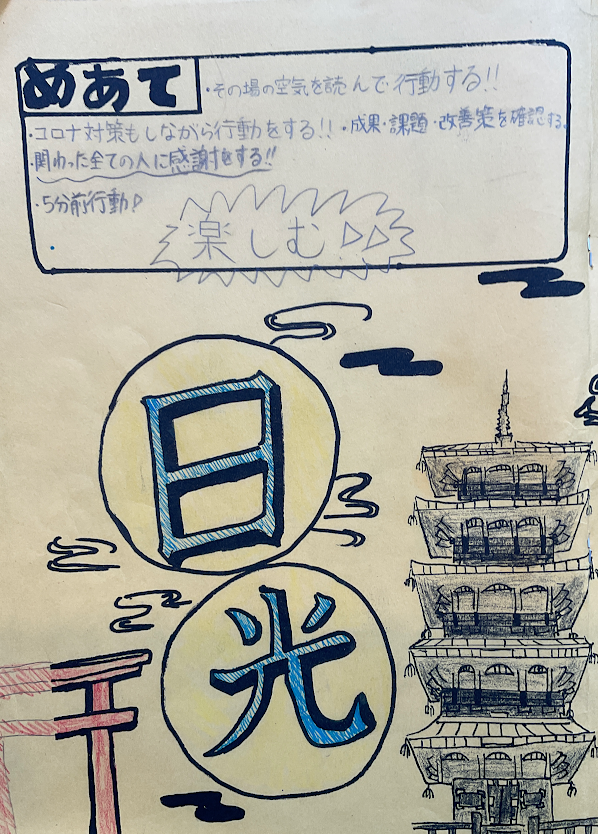 めあて
・その場の空気を読んで行動する!!
・コロナ対策もしながら行動をする!! ・成果・課題・改善策を確認する。
・関わった全ての人に感謝をする!!
・5分前行動♪
楽しむ▷▷
日
光